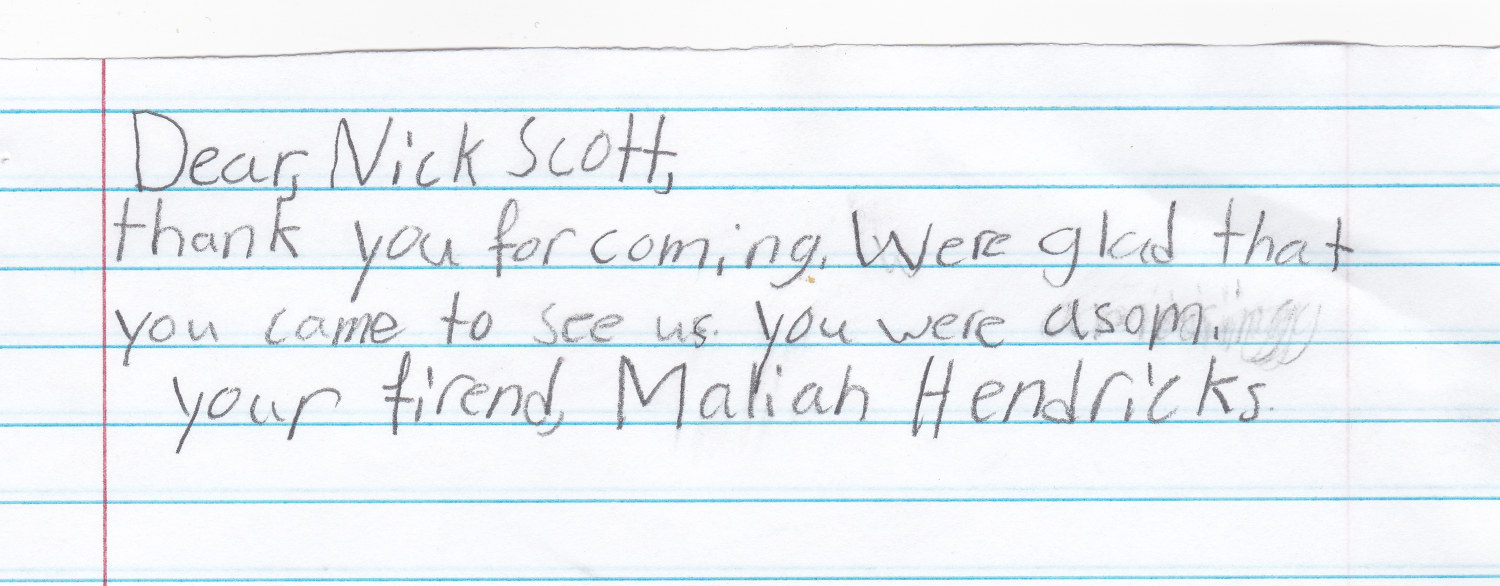 Dear, Nick Scott,
thank you for coming. Were glad that
you came to see us. you were asom.
your firend, Maliah Hendricks.